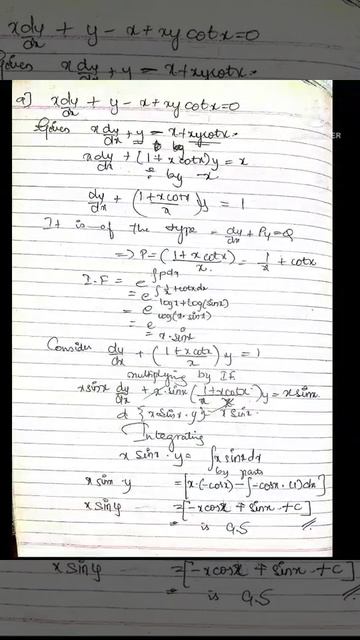 x dy/dx + y - x + xy cot x = 0
Given x dy/dx + y = x + xy cot x.
a] x dy/dx + y - x + xy cot x = 0
Given x dy/dx + y = x + xy cot x.
x dy/dx + (1 + x cot x) y = x
÷ by x
dy/dx + ((1 + x cot x)/x) y = 1
It is of the type = dy/dx + Py = Q
=> P = (1 + x cot x)/x = 1/x + cot x
I.F = e^∫pdx
= e^∫1/x + cot x dx
= e^log x + log(sin x)
= e^log(x·sin x)
= x·sin x
Consider dy/dx + ((1 + x cot x)/x) y = 1
multiplying by I.F
x sin x dy/dx + x·sin x ((1 + x cot x)/x) y = x sin x
d {x sin x · y} = x sin x.
Integrating
x sin x · y = ∫x sin x dx
by parts
x sin y = [x·(-cos x) - ∫-cos x·(1) dx]
x sin y = [-x cos x + sin x + c]
= is G.S
x sin y = [-x cos x + sin x + c]
= is G.S